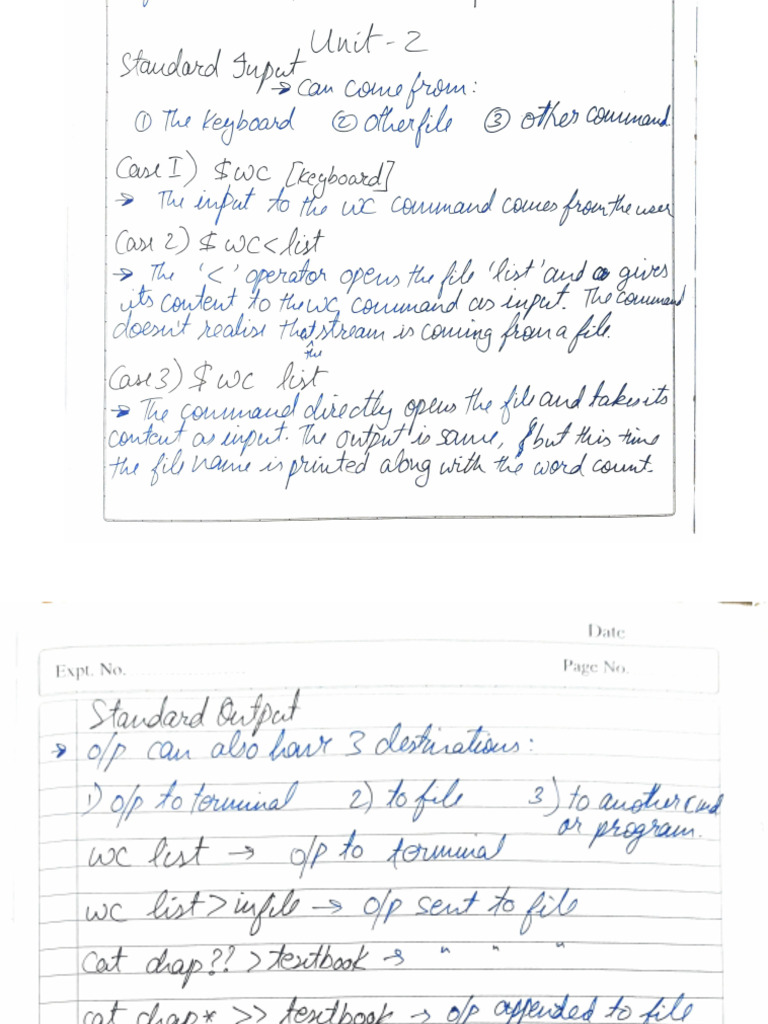 Unit - 2
Standard Input
→ can come from:
① The keyboard ② Otherfile ③ other command
Case I) $ wc [keyboard]
→ The input to the wc command comes from the user
Case 2) $ wc < list
→ The '<' operator opens the file 'list' and gives
its content to the wc command as input. The command
doesn't realise that the stream is coming from a file.
Case 3) $ wc list
→ The command directly opens the file and takes its
content as input. The output is same, but this time
the file name is printed along with the word count.
Date
Expt. No.
Page No.
Standard Output
→ o/p can also have 3 destinations:
1) o/p to terminal 2) to file 3) to another cmd
or program.
wc list → o/p to terminal
wc list > infile → o/p sent to file
cat chap?? > textbook → " " "
cat chap* >> textbook → o/p appended to file